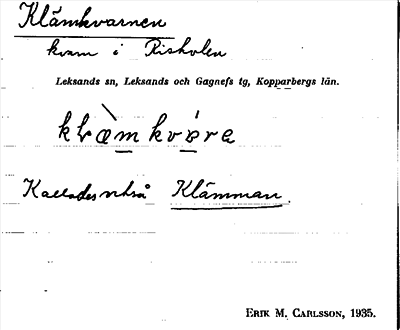 Klämkvarnen
kvarn i Risholen
Leksands sn, Leksands och Gagnefs tg, Kopparbergs län.
Kallades också Klämman
ERIK M. CARLSSON, 1935.